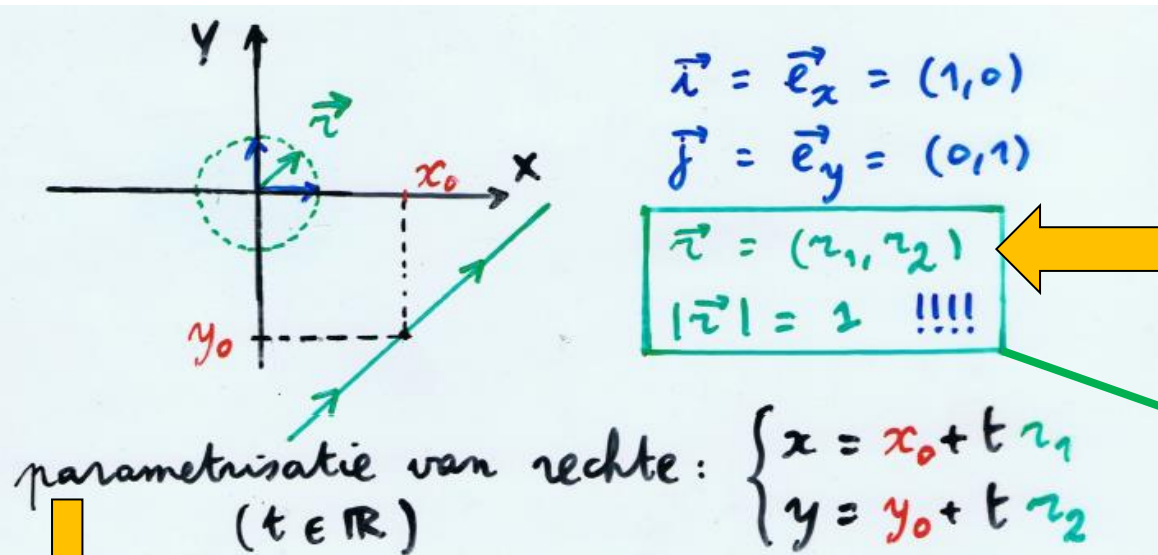 Y
r⃗
x₀
X
y₀
i⃗ = e⃗ₓ = (1,0)
j⃗ = e⃗_y = (0,1)
r⃗ = (r₁, r₂)
|r⃗| = 1 !!!!
parametrisatie van rechte: { x = x₀ + t r₁
(t ∈ ℝ) y = y₀ + t r₂